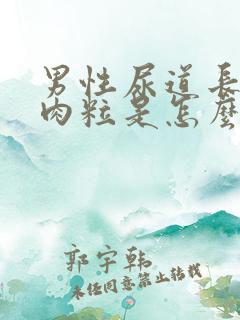 男性尿道長
肉粒是怎麼
郭宇韩
未经同意禁止转载